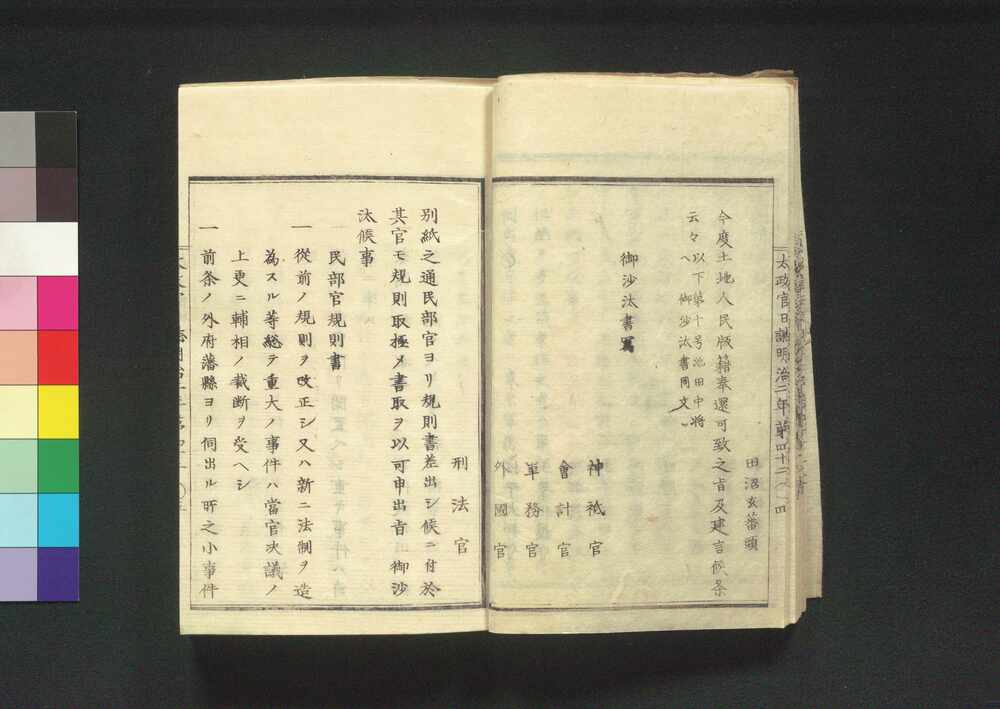 太政官日誌明治二年第四十二
田沼玄蕃頭
今度土地人民版籍奉還可致之旨及建言候条
云々以下第十号池田中将
ヘ 御沙汰書同文
御沙汰書写
神祇官
會計官
軍務官
外國官
刑法官
別紙之通民部官ヨリ規則書差出シ候ニ付於
其官モ規則取極メ書取ヲ以可申出旨 御沙
汰候事
民部官規則書
一 從前ノ規則ヲ改正シ又ハ新ニ法制ヲ造
為スル等総テ重大ノ事件ハ當官决議ノ
上更ニ輔相ノ裁断ヲ受ヘシ
一 前条ノ外府藩縣ヨリ伺出ル所之小事件